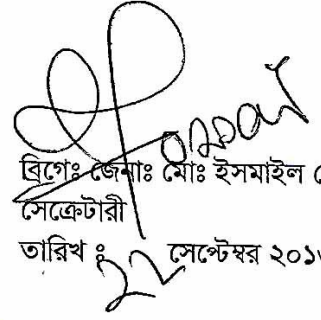 ব্রিগেঃ জেনাঃ মোঃ ইসমাইল
সেক্রেটারী
তারিখ ঃ ২২ সেপ্টেম্বর ২০১